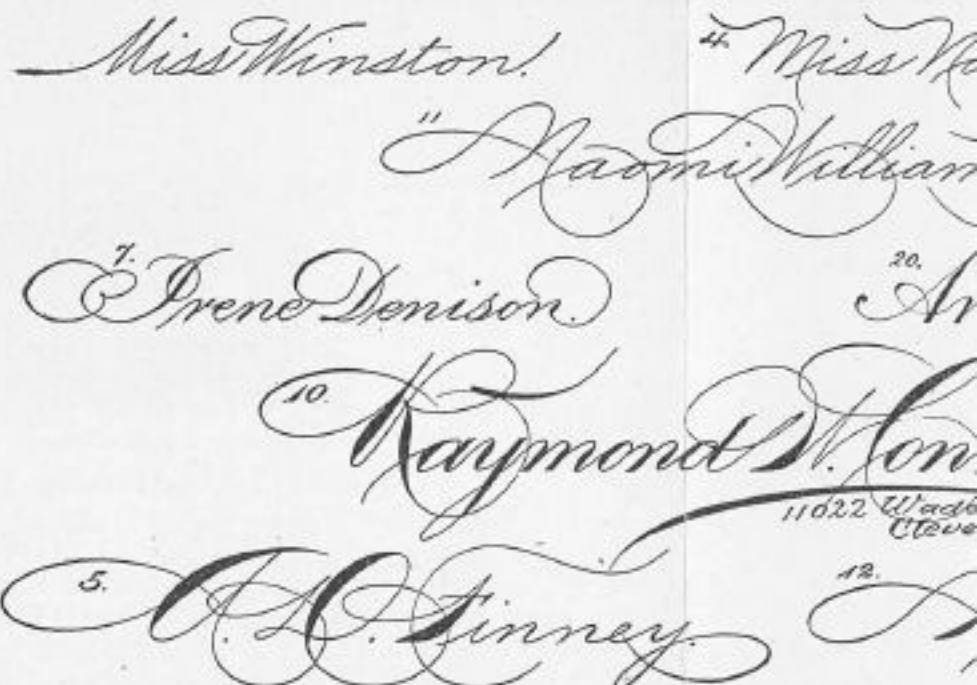 Miss Winston. 4. Miss Na
" Naomi William
7. Irene Denison. 20. Ar
10. Raymond W. Con
11022 Wad
Cleve
5. Finney. 12.